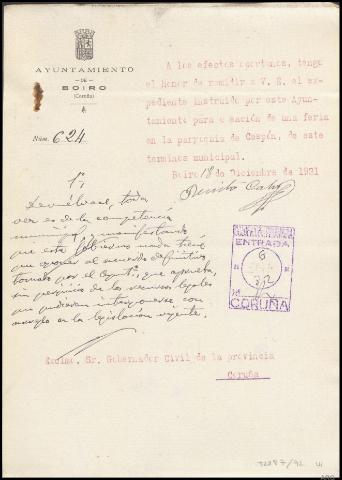 AYUNTAMIENTO
DE
BOIRO
(Coruña)
Núm. 624
A los efectos oportunos, tengo
el Honor de remitir a V. E. el ex-
pediente instruido por este Ayun-
tamiento para creación de una feria
en la parroquia de Cespón, de este
término municipal.
Boiro 18 de Diciembre de 1931
Devuélvase, toda
vez es de la competencia
municipal, manifestando
que este Gobierno nada tiene
que oponer al acuerdo definitivo
tomado por el Ayunto, que aprueba,
sin perjuicio de los recursos legales
que pudieran interponerse con
arreglo a la legislación vigente.
ENTRADA
CORUÑA
Excmo. Sr. Gobernador Civil de la provincia
Coruña